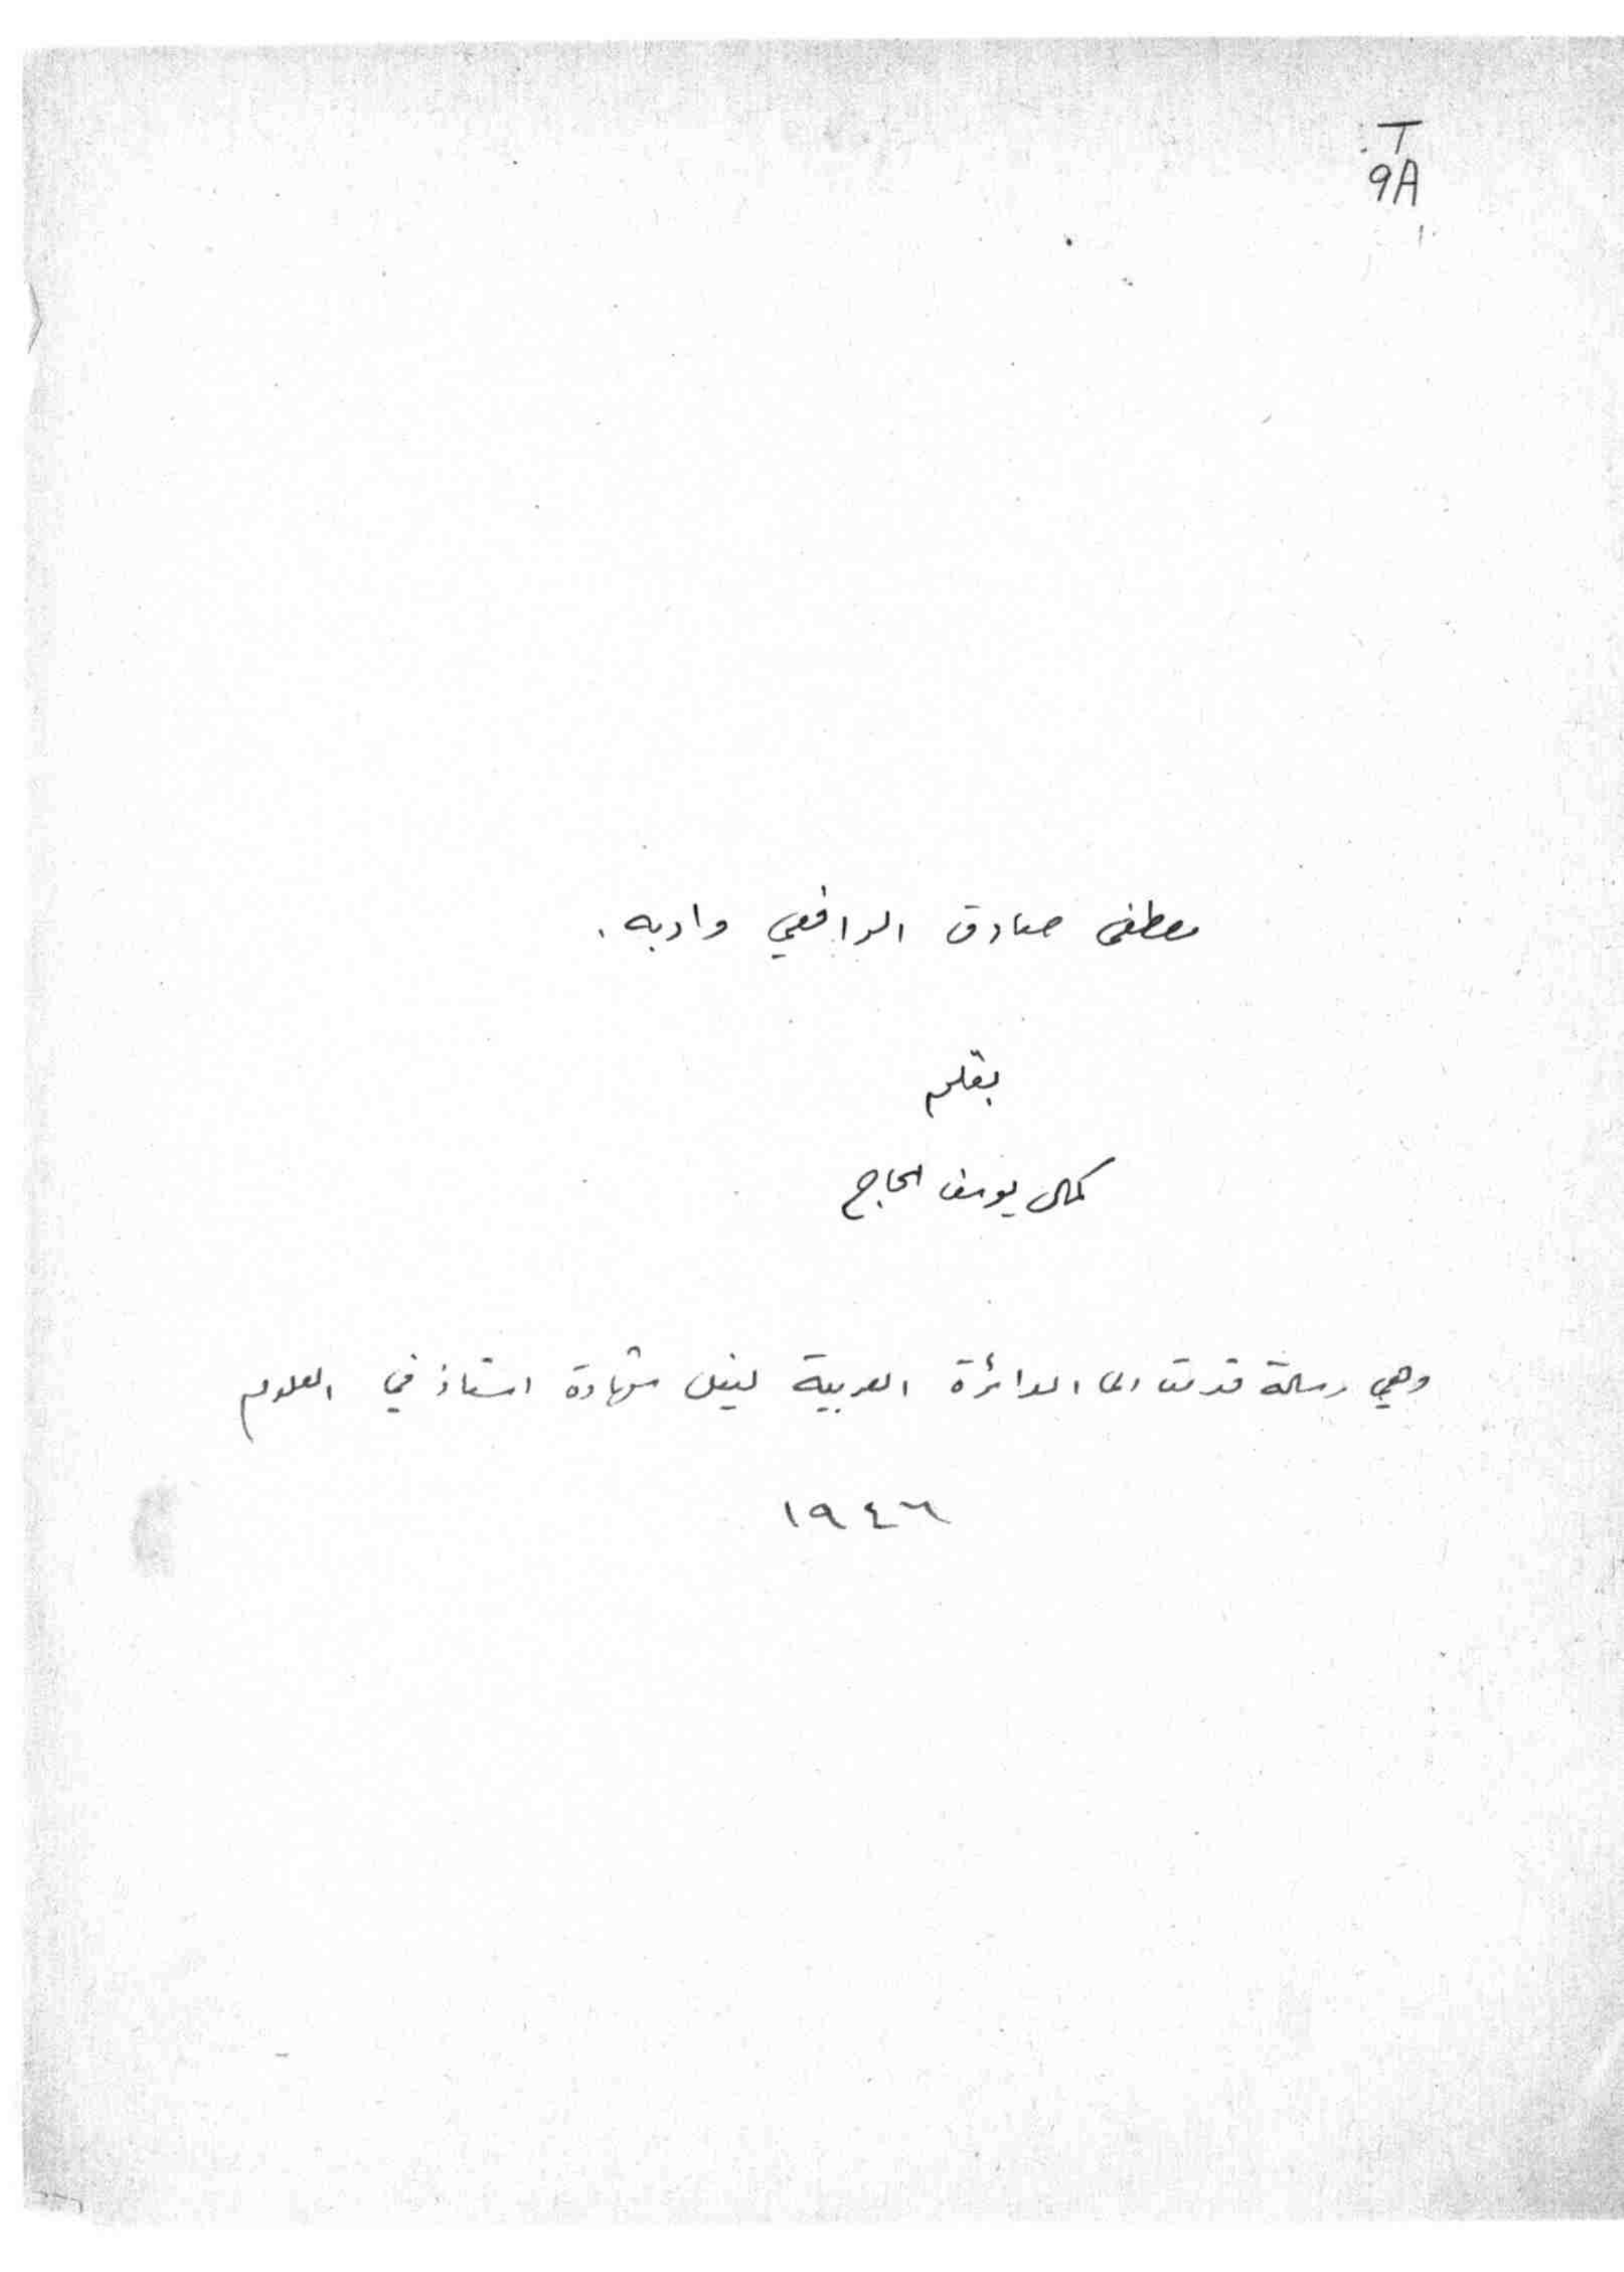 T
9A
مصطفى صادق الرافعي وادبه .
بقلم
كمال يوسف الحاج
وهي رسالة قدمت الى الدائرة العربية لنيل شهادة استاذ في العلوم
١٩٤٦